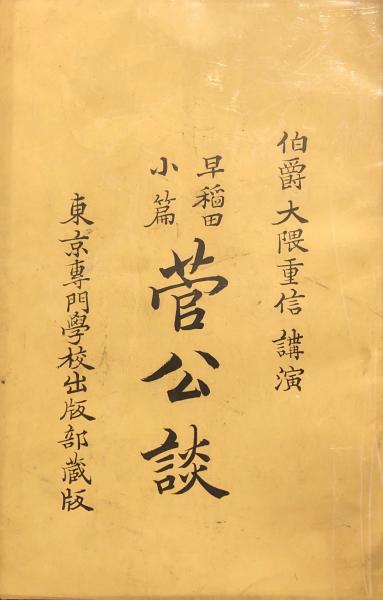 伯爵大隈重信講演
早稲田
小篇
菅公談
東京專門學校出版部蔵版